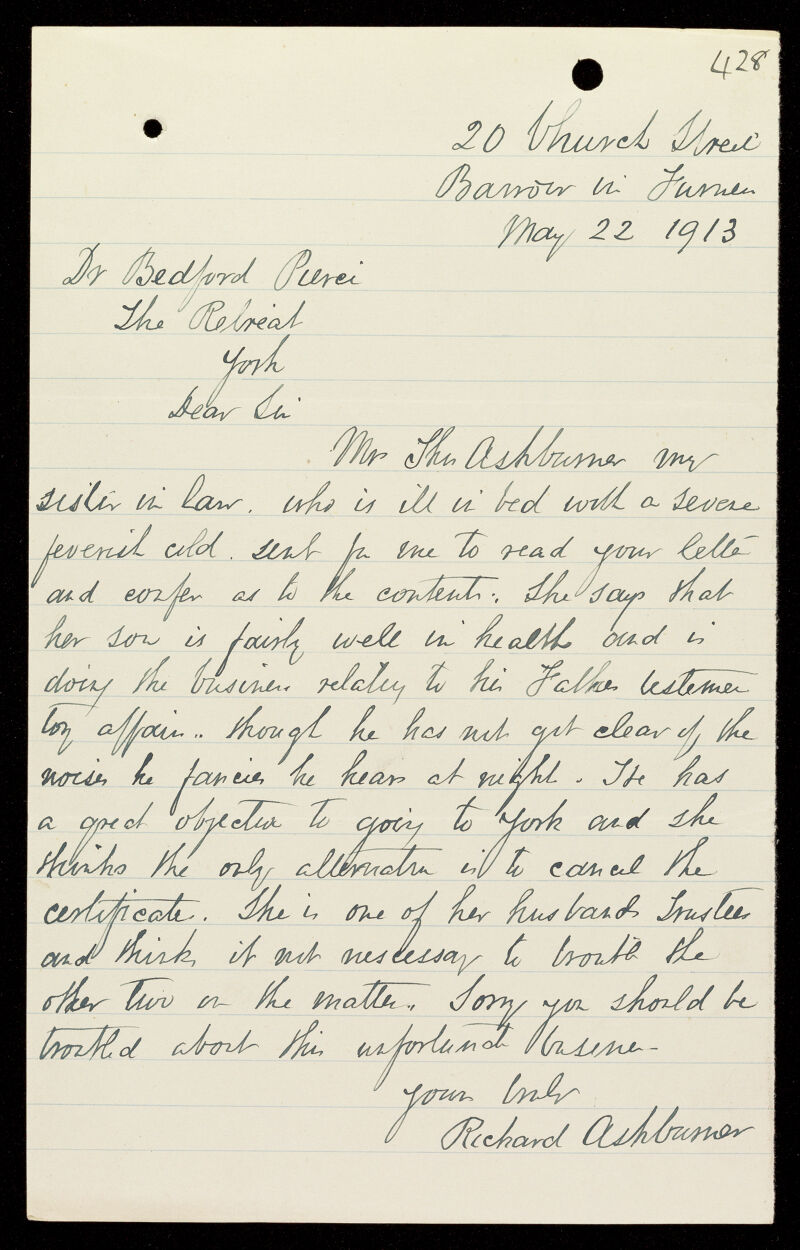 428
20 Church Street
Barrow in Furness
May 22 1913
Dr Bedford Pierce
The Retreat
York
Dear Sir
Mrs Thos Ashburner my
sister in law. who is ill in bed with a severe
feverish cold. sent for me to read your letter
and confer as to the contents. She says that
her son is fairly well in health and is
doing the business relating to his Fathers testemen
tory affairs. though he has not got clear of the
noises he fancies he hears at night. He has
a great objection to going to York and she
thinks the only alternative is to cancel the
certificate. She is one of her husbands Trustees
and thinks it not nescessary to trouble the
other two on the matter. Sorry you should be
troubled about this unfortunate business
yours truly
Richard Ashburner